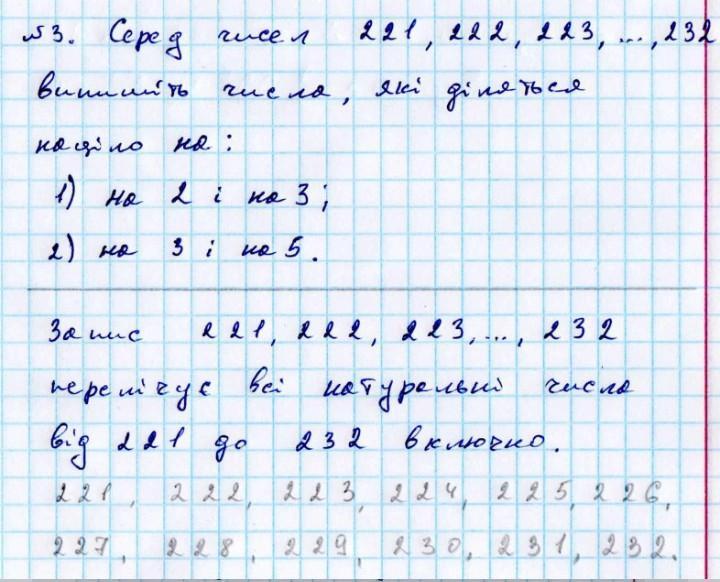 №3. Серед чисел 221, 222, 223, ..., 232
випишіть числа, які діляться
націло на:
1) на 2 і на 3;
2) на 3 і на 5.
Запис 221, 222, 223, ..., 232
перелічує всі натуральні числа
від 221 до 232 включно.
221, 222, 223, 224, 225, 226,
227, 228, 229, 230, 231, 232.